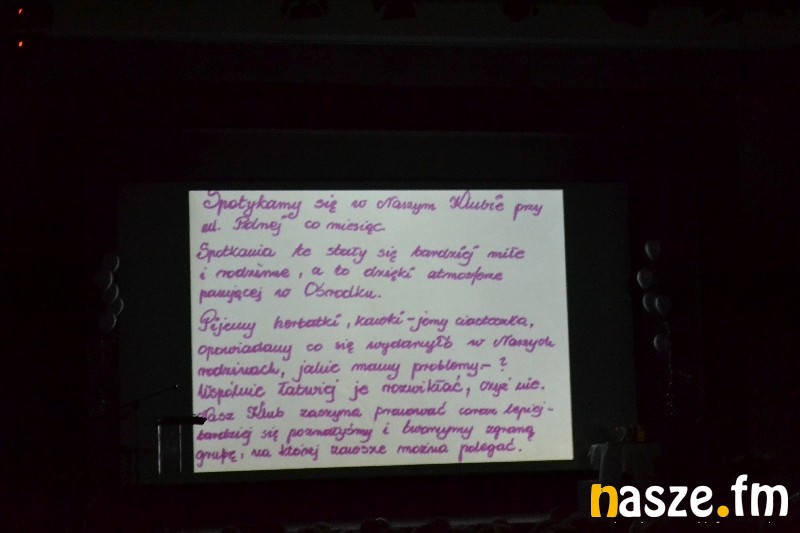 Spotykamy się w Naszym Klubie przy
ul. Polnej co miesiąc.
Spotkania te stały się bardziej miłe
i rodzinne, a to dzięki atmosferze
panującej w Ośrodku.
Pijemy herbatki, kawki - jemy ciasteczka,
opowiadamy co się wydarzyło w Naszych
rodzinach, jakie mamy problemy - ?
Wspólnie łatwiej je rozwikłać, czyż nie.
Nasz Klub zaczyna pracować coraz lepiej -
bardziej się poznałyśmy i tworzymy zgraną
grupę, na której zawsze można polegać.
nasze.fm